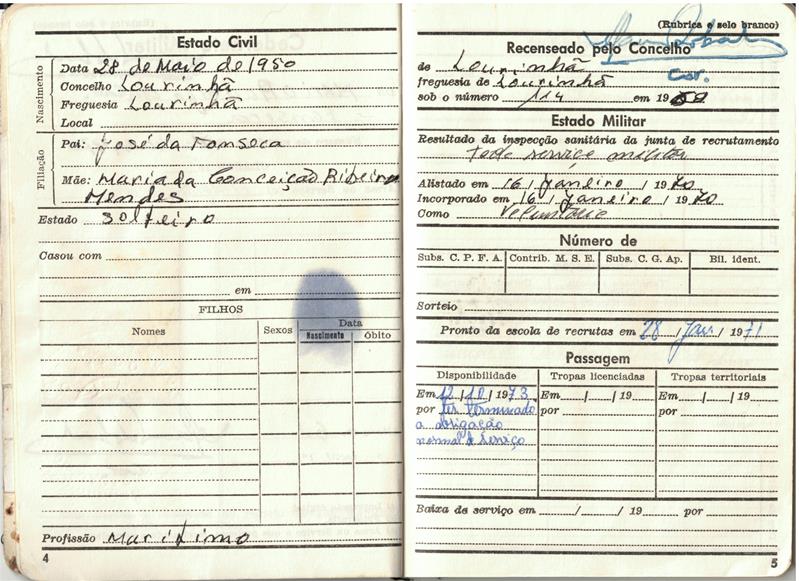 Estado Civil
Nascimento
Data 28 de Maio de 1950
Concelho Lourinhã
Freguesia Lourinhã
Local
Filiação
Pai: José da Fonseca
Mãe: Maria da Conceição Ribeiro
Mendes
Estado solteiro
Casou com
em
FILHOS
Nomes
Sexos
Data
Nascimento
Óbito
Profissão Maritimo
4
(Rubrica e selo branco)
Recenseado pelo Concelho
de Lourinhã
freguesia de Lourinhã
sob o número 114 em 19
Estado Militar
Resultado da inspecção sanitária da junta de recrutamento
todo serviço militar
Alistado em 16 / Janeiro / 1970
Incorporado em 16 / Janeiro / 1970
Como Voluntário
Número de
Subs. C. P. F. A. Contrib. M. S. E. Subs. C. G. Ap. Bil. ident.
Sorteio
Pronto da escola de recrutas em 28 / Jan / 1971
Passagem
Disponibilidade
Em 12 / 10 / 1973
por ter terminado
a obrigação
normal de serviço
Tropas licenciadas
Em / / 19
por
Tropas territoriais
Em / / 19
por
Baixa de serviço em / / 19 por
5